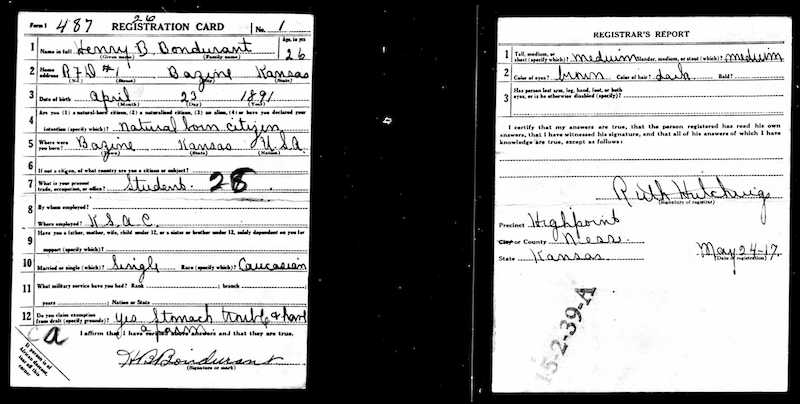 Form 1 487 26 REGISTRATION CARD No. 1
1 Name in full Henry B. Bondurant Age, in yrs 26
(Given name) (Family name)
2 Home address R F D #1 Bazine Kansas
(No.) (Street) (City) (State)
3 Date of birth April 23 1891
(Month) (Day) (Year)
4 Are you (1) a natural-born citizen, (2) a naturalized citizen, (3) an alien, (4) or have you declared your
intention (specify which)? Natural born citizen
5 Where were you born? Bazine Kansas U.S.A
(Town) (State) (Nation)
6 If not a citizen, of what country are you a citizen or subject?
7 What is your present trade, occupation, or office? Student. 28
8 By whom employed?
Where employed? K.S.A.C.
9 Have you a father, mother, wife, child under 12, or a sister or brother under 12, solely dependent on you for
support (specify which)?
10 Married or single (which)? Single Race (specify which)? Caucasian
11 What military service have you had? Rank ; branch
years ; Nation or State
12 Do you claim exemption from draft (specify grounds)? Yes. Stomach trouble &
a farm
I affirm that I have verified above answers and that they are true.
H B Bondurant
(Signature or mark)
If person is of African descent, tear off this corner
REGISTRAR'S REPORT
1 Tall, medium, or short (specify which)? medium Slender, medium, or stout (which)? medium
2 Color of eyes? brown Color of hair? dark Bald?
3 Has person lost arm, leg, hand, foot, or both eyes, or is he otherwise disabled (specify)?
I certify that my answers are true, that the person registered has read his own
answers, that I have witnessed his signature, and that all of his answers of which I have
knowledge are true, except as follows:
Ruth
(Signature of registrar)
Precinct Highpoint
City or County Ness.
State Kansas
May 24-17
(Date of registration)
15-2-39-A